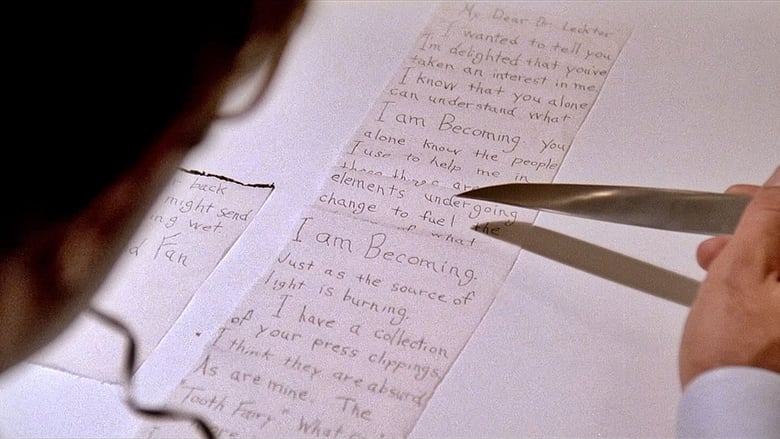 My Dear Dr. Lecktor
I wanted to tell you
I'm delighted that you've
taken an interest in me.
I know that you alone
can understand what
I am Becoming. You
alone know the people
I use to help me in
these those are
elements undergoing
change to fuel the
of what
I am Becoming.
Just as the source of
light is burning.
I have a collection
of your press clippings.
I think they are absurd
As are mine. The
"Tooth Fairy" What
back
might send
ing wet
d Fan